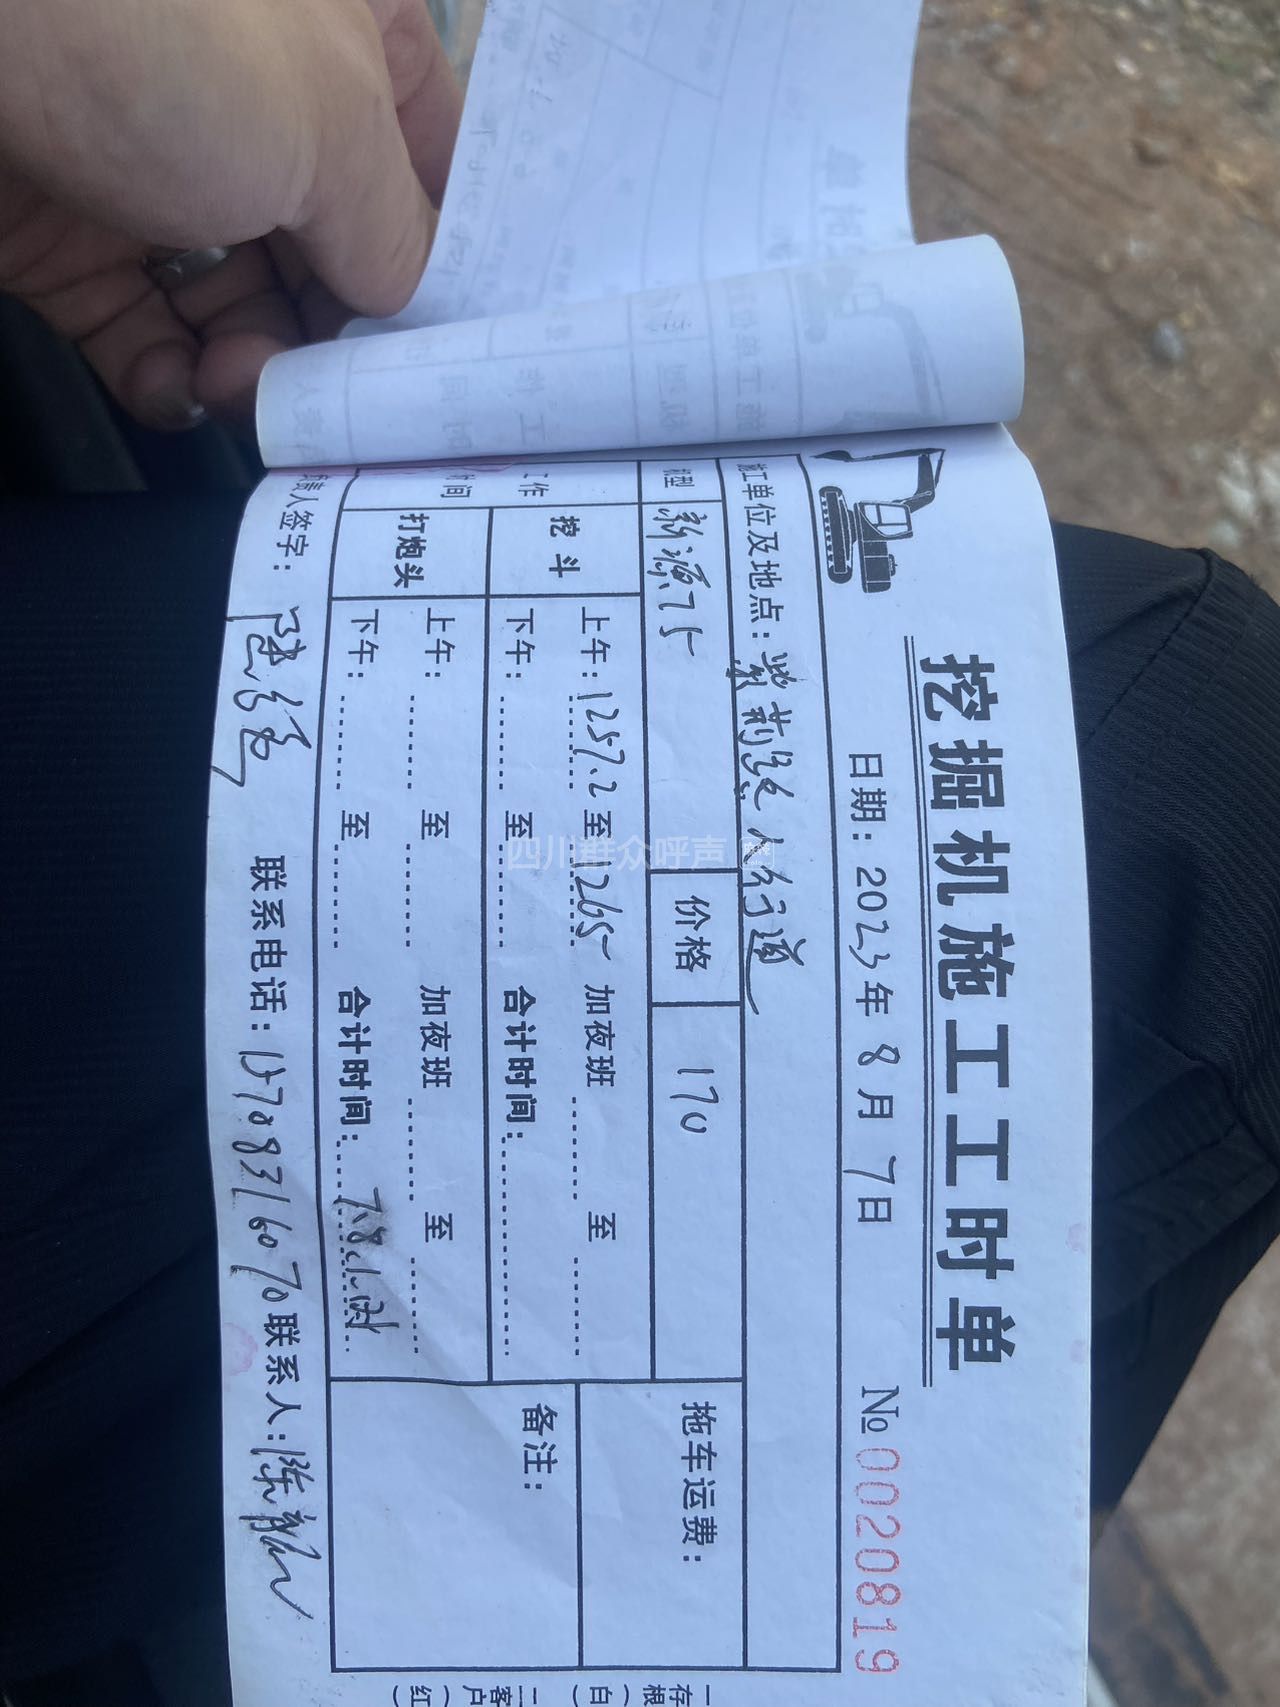 挖掘机施工工时单
日期：2023年8月7日 № 0020819
施工单位及地点：紫荆 人行道
机型 新源75 价格 170 拖车运费：
工作时间 挖斗 上午：1257.2至1265 加夜班 至
下午： 至 合计时间：
打炮头 上午： 至 加夜班 至
下午： 至 合计时间：7.8小时
备注：
负责人签字： 联系电话：15708316070 联系人：陈
一存根（白）
二客户（红）
四川群众呼声